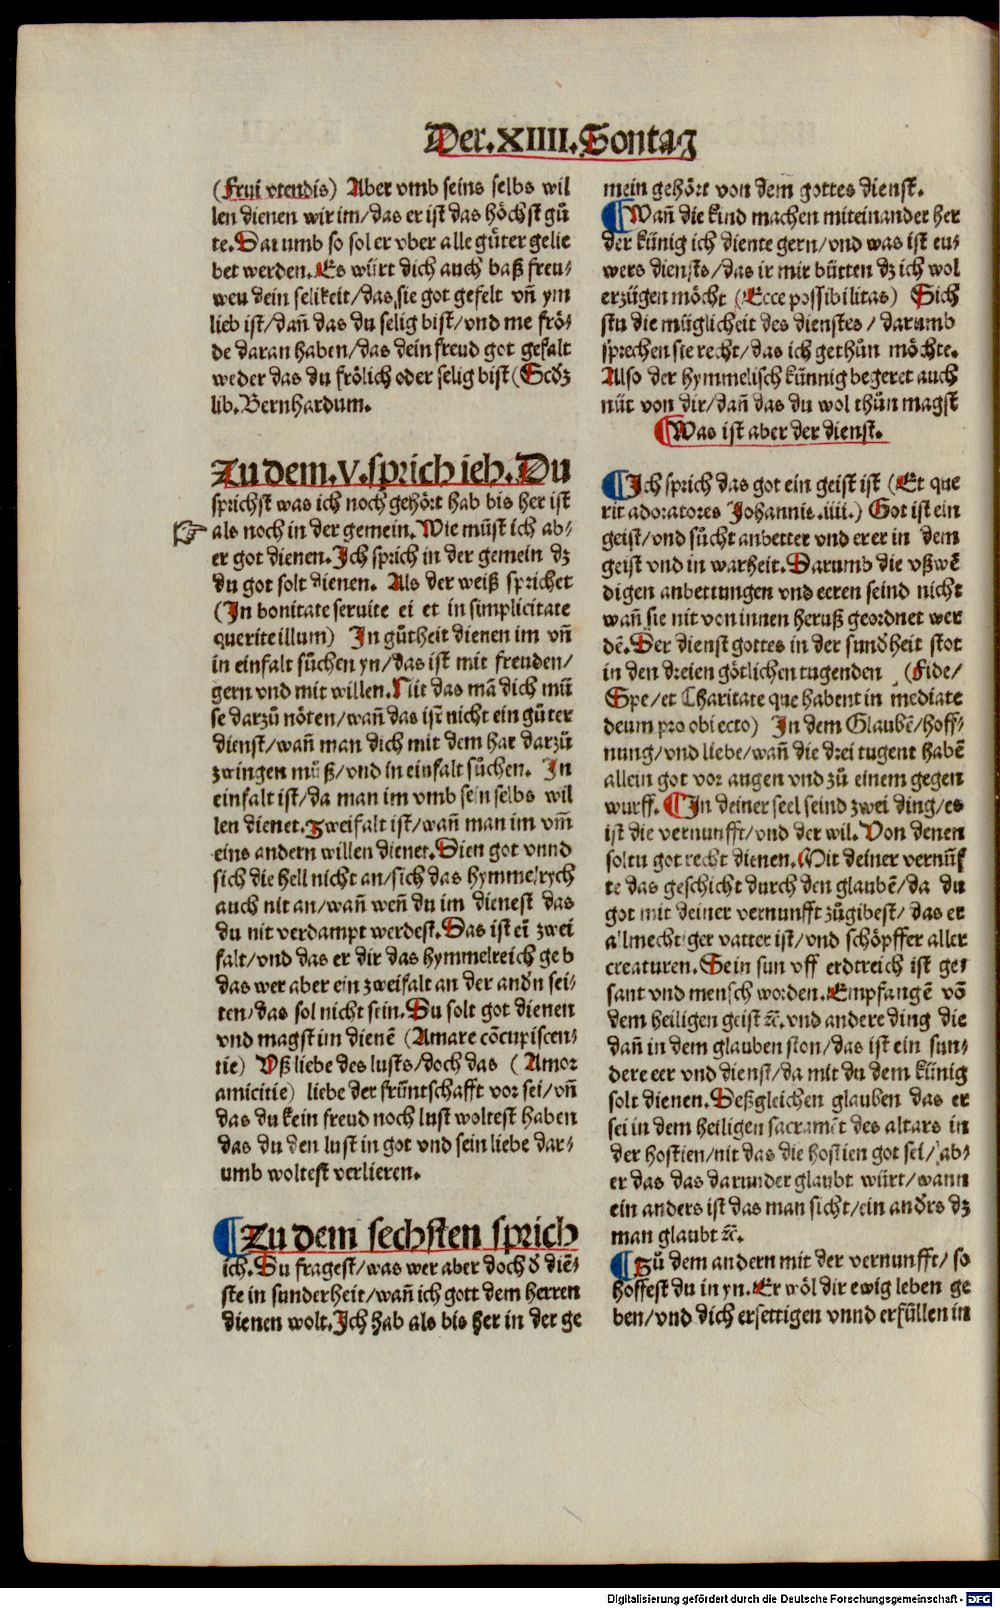 Der.XIIII.Sontag
(Frui vtendis) Aber vmb seins selbs wil
len dienen wir im/das er ist das höchst gů
te.Darumb so sol er vber alle gůter gelie
bet werden.Es würt dich auch baß freu⸗
wen dein selikeit/das sie got gefelt vñ ym
lieb ist/dañ das du selig bist/vnd me frö⸗
de daran haben/das dein freud got gefalt
weder das du frölich oder selig bist (Scdʒ
lib.Bernhardum.
Zu dem.V.sprich ich.Du
sprichst was ich noch gehört hab bis her ist
als noch in der gemein.Wie můst ich ab⸗
er got dienen.Ich sprich in der gemein dʒ
du got solt dienen. Als der weiß sprichet
(In bonitate seruite ei et in simplicitate
querite illum) In gůtheit dienen im vñ
in einfalt sůchen yn/das ist mit freuden/
gern vnd mit willen.Nit das mā dich mů
se darzů nöten/wañ das ist nicht ein gůter
dienst/wañ man dich mit dem har darzů
zwingen můß/vnd in einfalt sůchen. In
einfalt ist/da man im vmb sein selbs wil
len dienet.Zweifalt ist/wañ man im vm̄
eins andern willen dienet.Dien got vnnd
sich die hell nicht an/sich das hymmelrych
auch nit an/wañ weñ du im dienest das
du nit verdampt werdest.Das ist eī zwei
falt/vnd das er dir das hymmelreich geb
das wer aber ein zweifalt an der andn sei⸗
ten/das sol nicht sein.Du solt got dienen
vnd magst im dienē (Amare cōcupiscen⸗
tie) Vß liebe des lusts/doch das (Amor
amicitie) liebe der früntschafft vor sei/vñ
das du kein freud noch lust woltest haben
das du den lust in got vnd sein liebe dar⸗
umb woltest verlieren.
¶Zu dem sechsten sprich
ich.Du fragest/was wer aber doch d̕ diē⸗
ste in sunderheit/wañ ich gott dem herren
dienen wolt.Ich hab als bis her in der ge
mein gehört von dem gottes dienst.
¶Wañ die kind machen miteinander her
der künig ich diente gern/vnd was ist eu⸗
wers diensts/das ir mir bütten dʒ ich wol
erzügen möcht (Ecce possibilitas) Sich
stu die müglicheit des dienstes/darumb
sprechen sie recht/das ich gethůn möchte.
Also der hymmelisch künnig begeret auch
nüt von dir/dañ das du wol thůn magst
¶Was ist aber der dienst.
¶Ich sprich das got ein geist ist (Et que
rit adoratores Johannis.iiii.) Got ist ein
geist/vnd sůcht anbetter vnd erer in dem
geist vnd in warheit.Darumb die vßwē
digen anbettungen vnd eeren seind nicht
wañ sie nit von innen heruß geordnet wer
dē.Der dienst gottes in der sundheit stot
in den dreien götlichen tugenden (Fide/
Spe/et Charitate que habent in mediate
deum pro obiecto) In dem Glaubē/hoff⸗
nung/vnd liebe/wañ die drei tugent habē
allein got vor augen vnd zů einem gegen
wurff.¶In deiner seel seind zwei ding/es
ist die vernunfft/vnd der wil.Von denen
soltu got recht dienen.Mit deiner vernūf
te das geschicht durch den glaubē/da du
got mit deiner vernunfft zůgibest/das er
allmechtiger vatter ist/vnd schöpffer aller
creaturen.Sein sun vff erdtreich ist ge⸗
sant vnd mensch worden.Empfangē vō
dem heiligen geist ꝛc̄.vnd andere ding die
dañ in dem glauben ston/das ist ein sun⸗
dere eer vnd dienst/da mit du dem künig
solt dienen.Deßgleichen glauben das er
sei in dem heiligen sacramēt des altars in
der hostien/nit das die hostien got sei/ab⸗
er das das darunder glaubt würt/wann
ein anders ist das man sicht/ein andrs dʒ
man glaubt ꝛc̄.
¶Zů dem andern mit der vernunfft/so
hoffest du in yn.Er wöl dir ewig leben ge
ben/vnd dich ersettigen vnnd erfüllen in
Digitalisierung gefördert durch die Deutsche Forschungsgemeinschaft - DFG